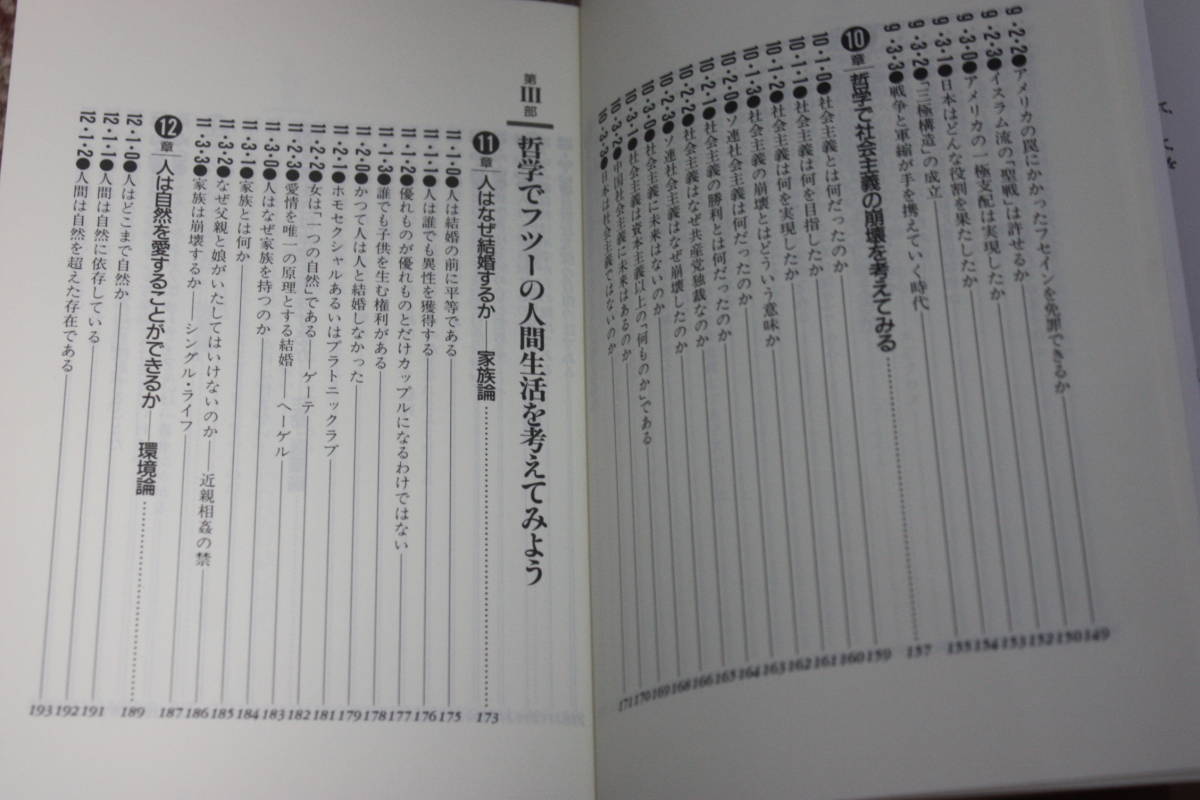 9・2・2●アメリカの罠にかかったフセインを免罪できるか 149
9・2・3●イスラム流の「聖戦」は許せるか 150
9・3・0●アメリカの一極支配は実現したか 152
9・3・1●日本はどんな役割を果たしたか 153
9・3・2●「三極構造」の成立 154
9・3・3●戦争と軍縮が手を携えていく時代 155
10章 哲学で社会主義の崩壊を考えてみる 157
10・1・0●社会主義とは何だったのか 159
10・1・1●社会主義は何を目指したか 160
10・1・2●社会主義は何を実現したか 161
10・1・3●社会主義の崩壊とはどういう意味か 162
10・2・0●ソ連社会主義は何だったのか 163
10・2・1●社会主義の勝利とは何だったのか 164
10・2・2●社会主義はなぜ共産党独裁なのか 165
10・2・3●ソ連社会主義はなぜ崩壊したのか 166
10・3・0●社会主義に未来はないのか 168
10・3・1●社会主義は資本主義以上の「何ものか」である 169
10・3・2●中国社会主義に未来はあるのか 170
10・3・3●日本は社会主義ではないのか 171
第III部 哲学でフツーの人間生活を考えてみよう
11章 人はなぜ結婚するか――家族論 173
11・1・0●人は結婚の前に平等である 175
11・1・1●人は誰でも異性を獲得する 176
11・1・2●優れものが優れものとだけカップルになるわけではない 177
11・1・3●誰でも子供を生む権利がある 178
11・2・0●かつて人は人と結婚しなかった 179
11・2・1●ホモセクシャルあるいはプラトニックラブ 181
11・2・2●女は「一つの自然」である――ゲーテ 182
11・2・3●愛情を唯一の原理とする結婚――ヘーゲル 183
11・3・0●人はなぜ家族を持つのか 184
11・3・1●家族とは何か 185
11・3・2●なぜ父親と娘がいたしてはいけないのか――近親相姦の禁 186
11・3・3●家族は崩壊するか――シングル・ライフ 187
12章 人は自然を愛することができるか――環境論 189
12・1・0●人はどこまで自然か 191
12・1・1●人間は自然に依存している 192
12・1・2●人間は自然を超えた存在である 193